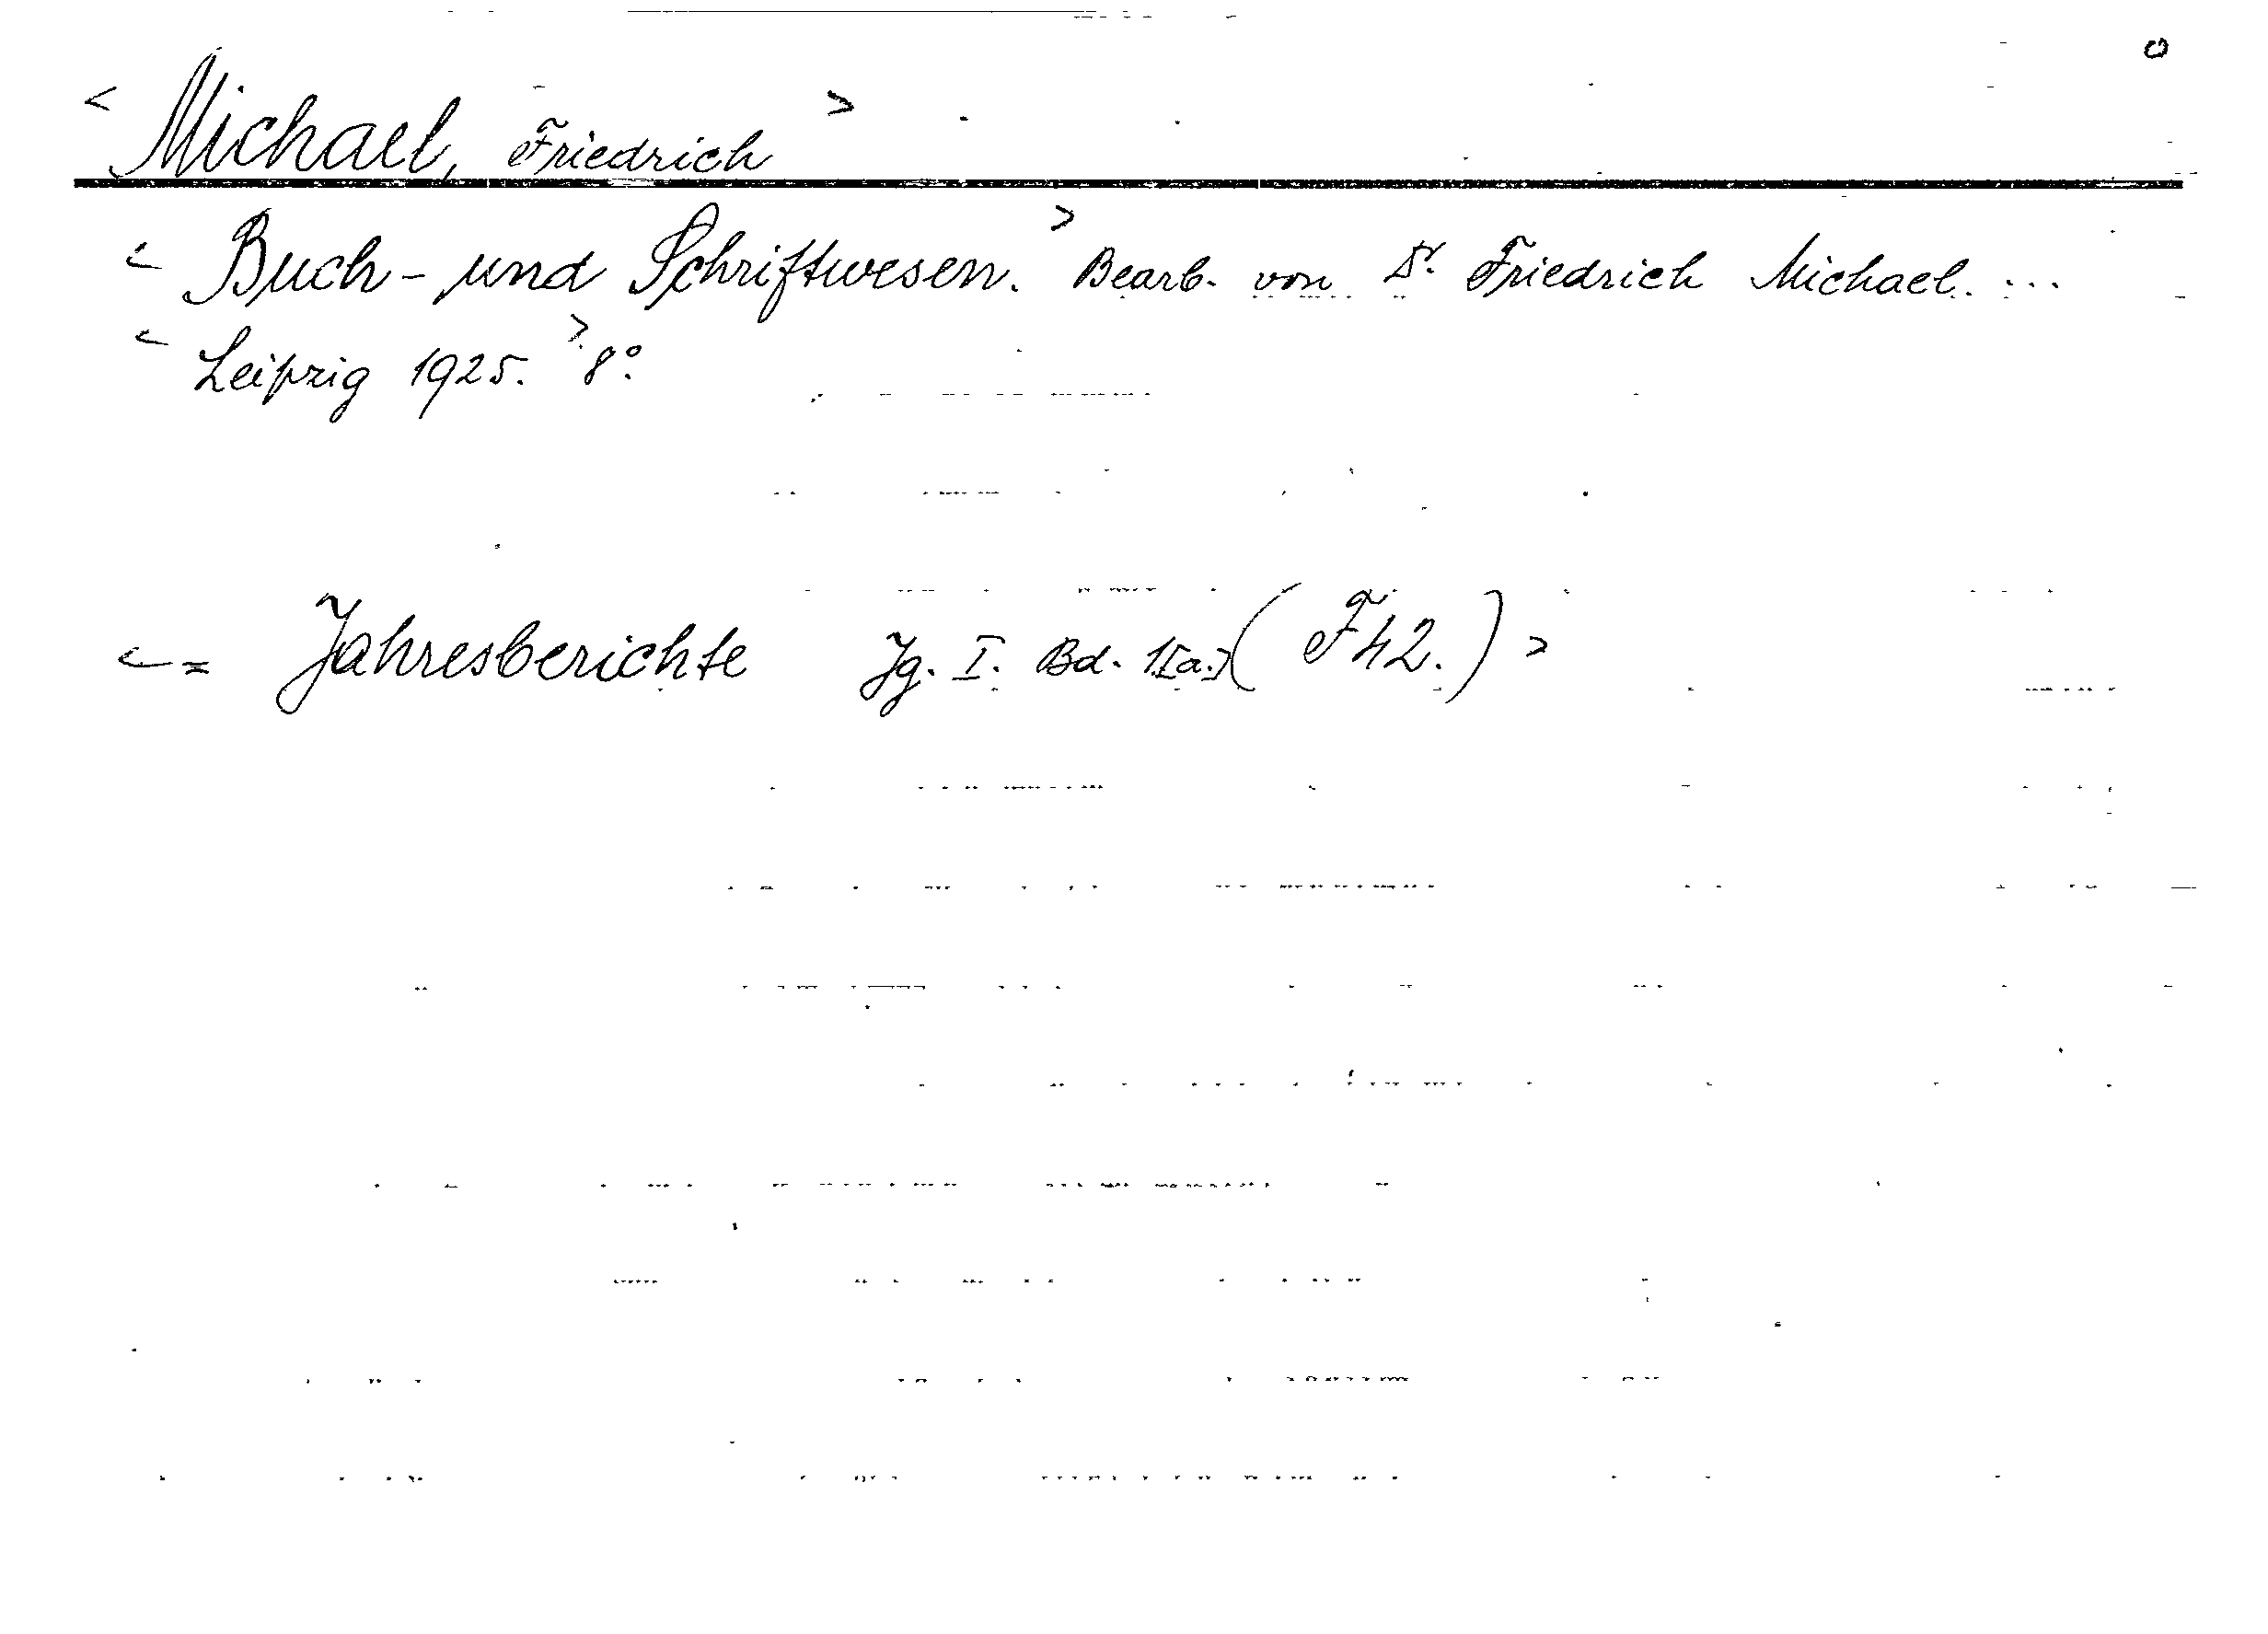 < Michael, Friedrich >
< Buch- und Schriftwesen. > Bearb. von Dr. Friedrich Michael. ...
< Leipzig 1925. > 8°.
< = Jahresberichte Jg. I. Bd. 1[a.] (F42.) >